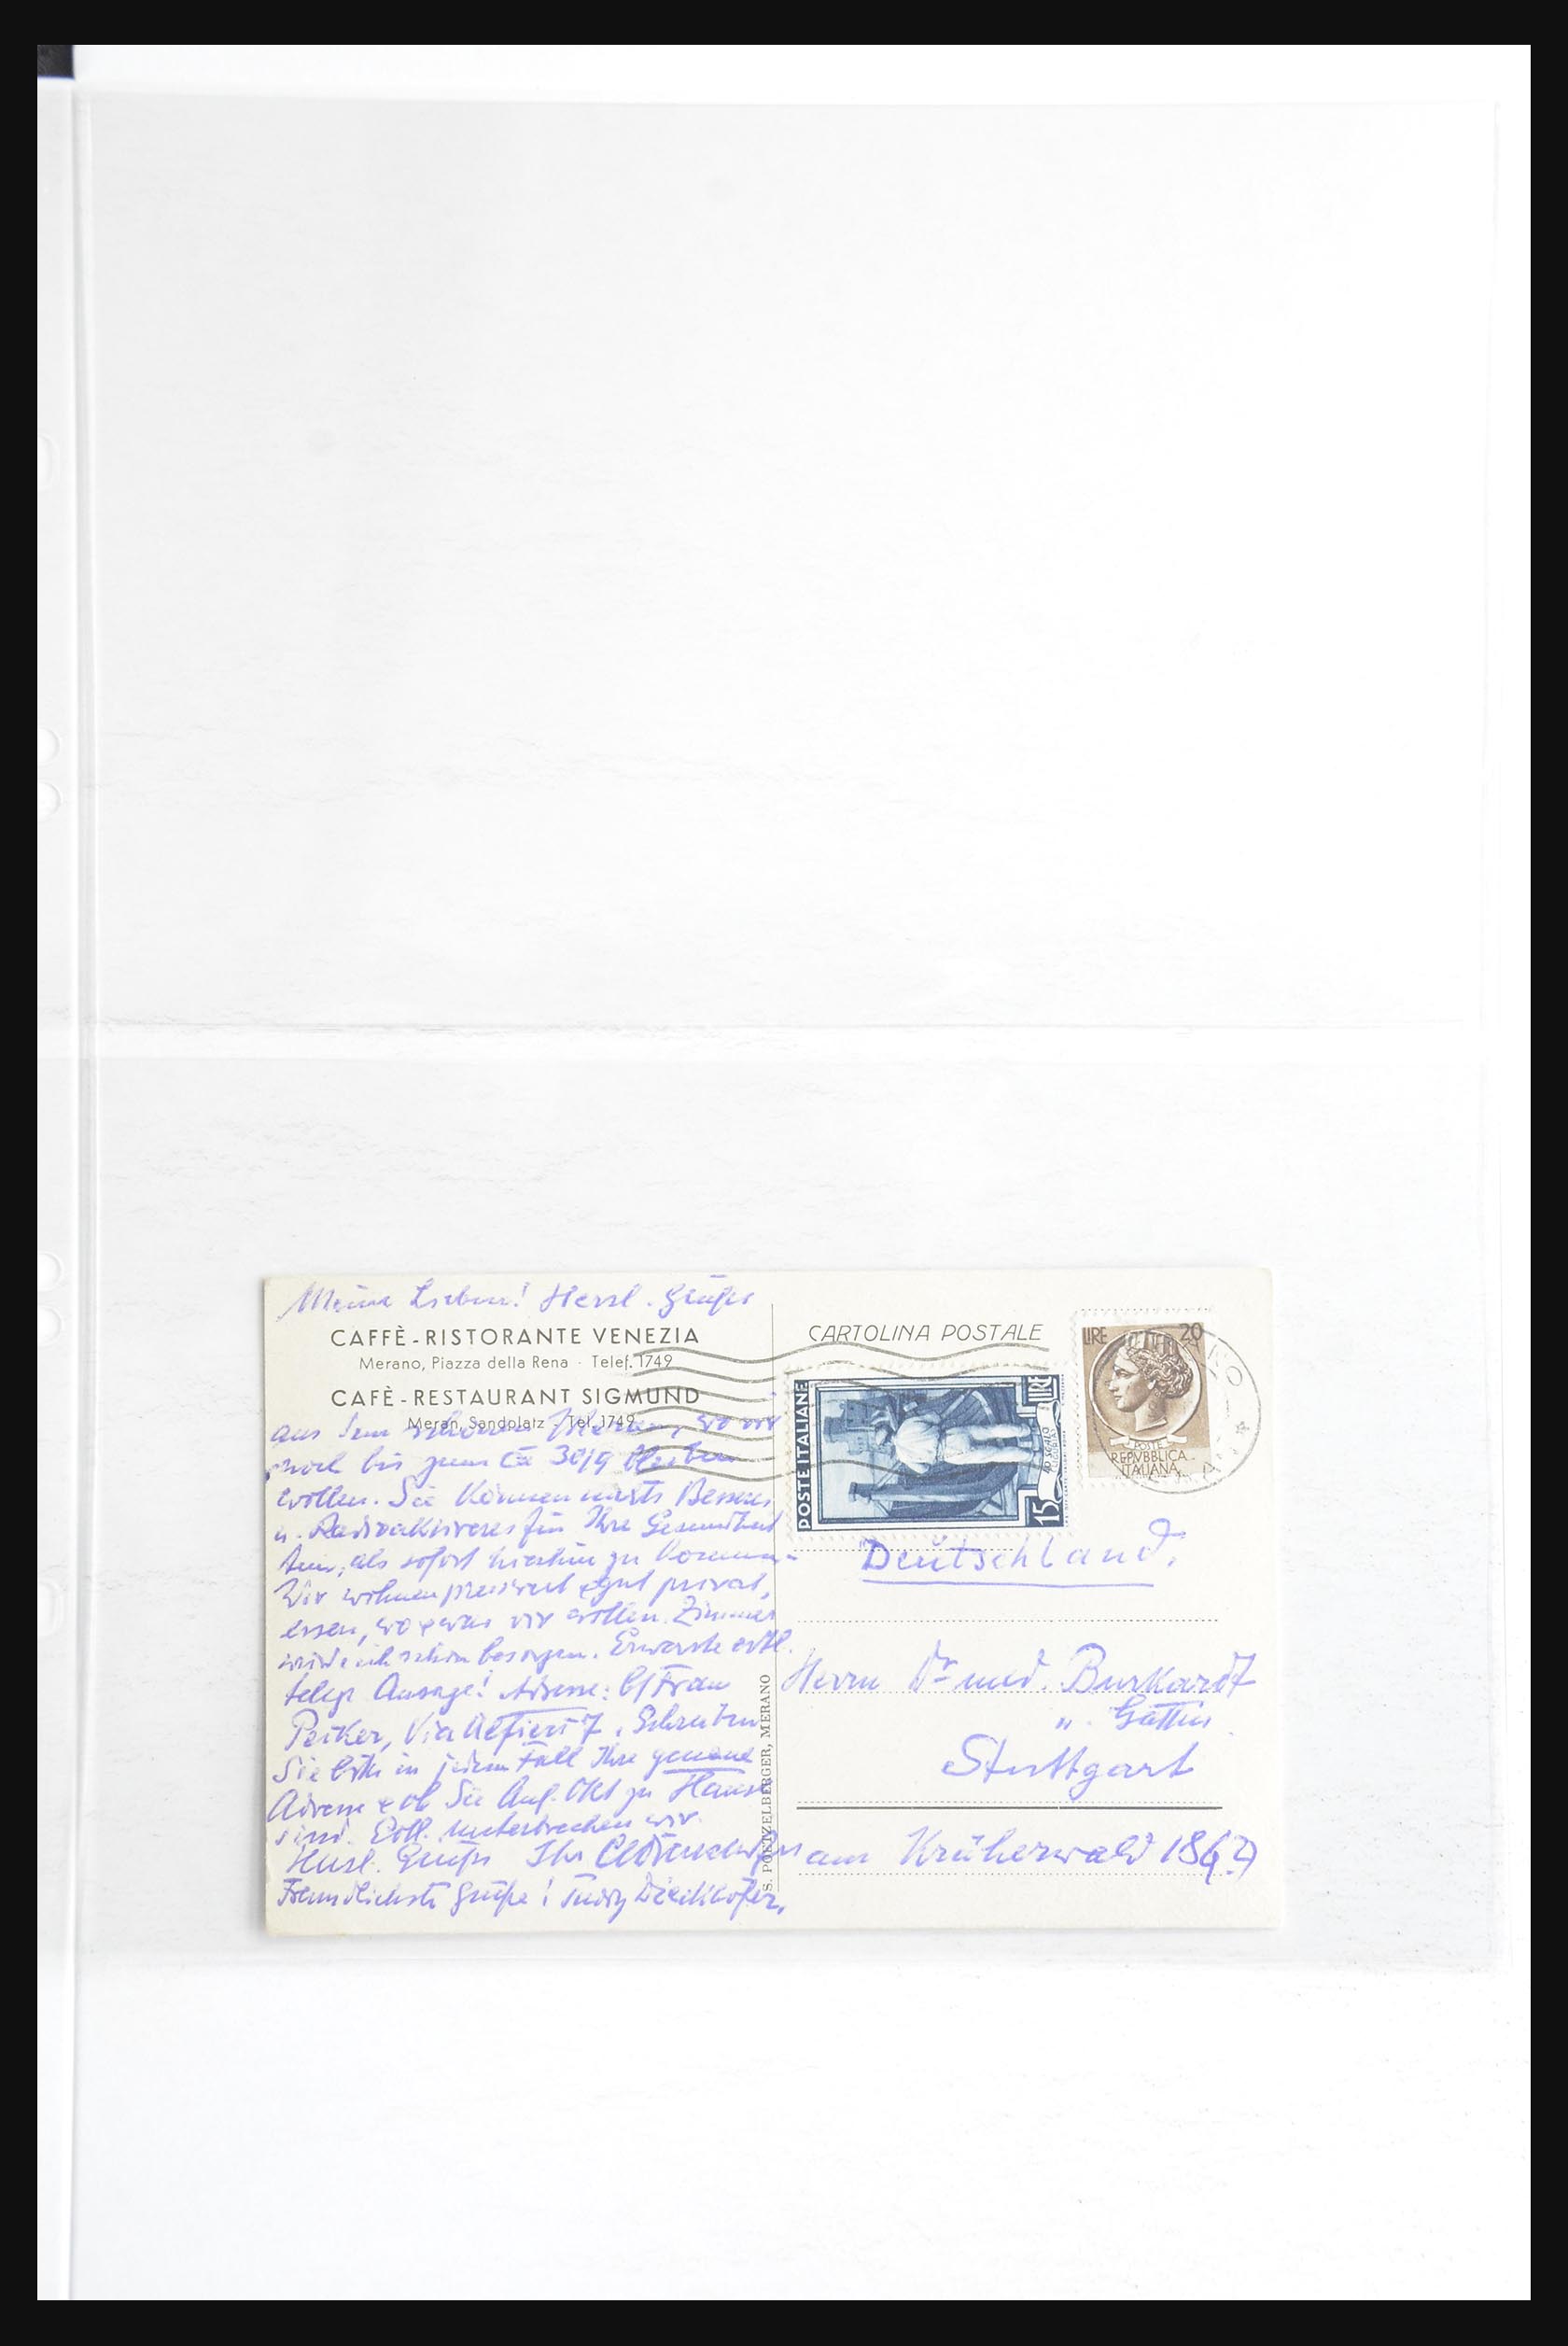 Meine Lieben! Herzl. Grüße
CAFFÈ-RISTORANTE VENEZIA
Merano, Piazza della Rena · Telef. 1749
CAFÈ-RESTAURANT SIGMUND
Meran, Sandplatz · Tel. 1749
aus dem schönen Meran, wo wir
noch bis zum ca 30/9 bleiben
wollen. Sie können nichts Besseres
u. Radioaktiveres für Ihre Gesundheit
tun, als sofort hierhin zu kommen.
Wir wohnen preiswert & gut privat,
essen, wo & was wir wollen. Zimmer
würde ich schon besorgen. Erwarte evtl.
telegr Ansage! Adresse: b/ Frau
Peiker, Via Alfieri 7. Schreiben
Sie bitte in jedem Fall Ihre genaue
Adresse & ob Sie Anf. Okt zu Hause
sind. Evtl. unterbrechen wir
Herzl. Grüße Ihr
Freundlichste Grüße!
S. POETZELBERGER, MERANO
CARTOLINA POSTALE
LIRE 20
POSTE
REPVBBLICA
ITALIANA
POSTE ITALIANE
15 LIRE
LO SCALO
Deutschland.
Herrn Dr med. Burkardt
" Gattin
Stuttgart
am Kräherwald 186 ?)